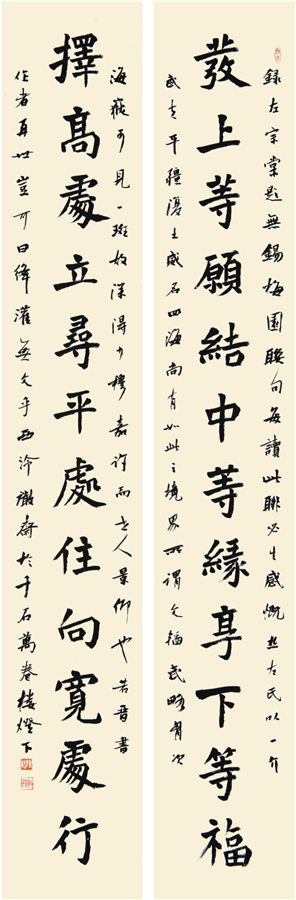 錄左宗棠題無錫梅園聯句每讀此聯必生感慨然左氏以一介
發上等願結中等緣享下等福
武夫平疆復土威名四海尚有如此之境界所謂文韜武略胸次
海嶽可見一斑故深得少穆嘉許而世人景仰也若晉書
擇高處立尋平處住向寬處行
作者再世豈可曰絳灌無文乎西泠於千石萬春樓燈下